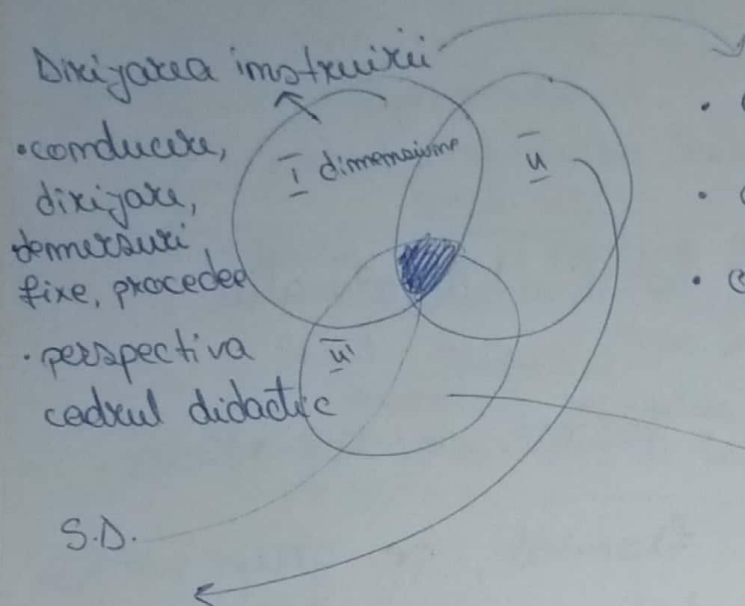 Dirijarea instruirii
•conducere,
dirijare,
demersuri
fixe, procedee
• perspectiva
cadrul didactic
I dimensiune
II
III
S.D.